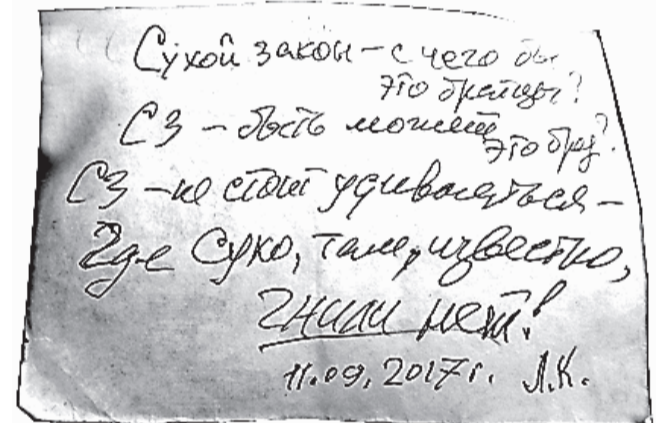 Сухой закон – с чего бы
это братцы?
СЗ – быть может
это бред?
СЗ – не стоит удивляться –
Где сухо, там, известно,
гнили нет!
11.09.2017г. Л.К.